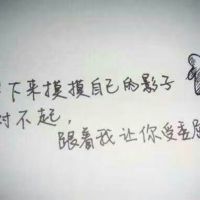 下来摸摸自己的影子
对不起，
跟着我让你受委